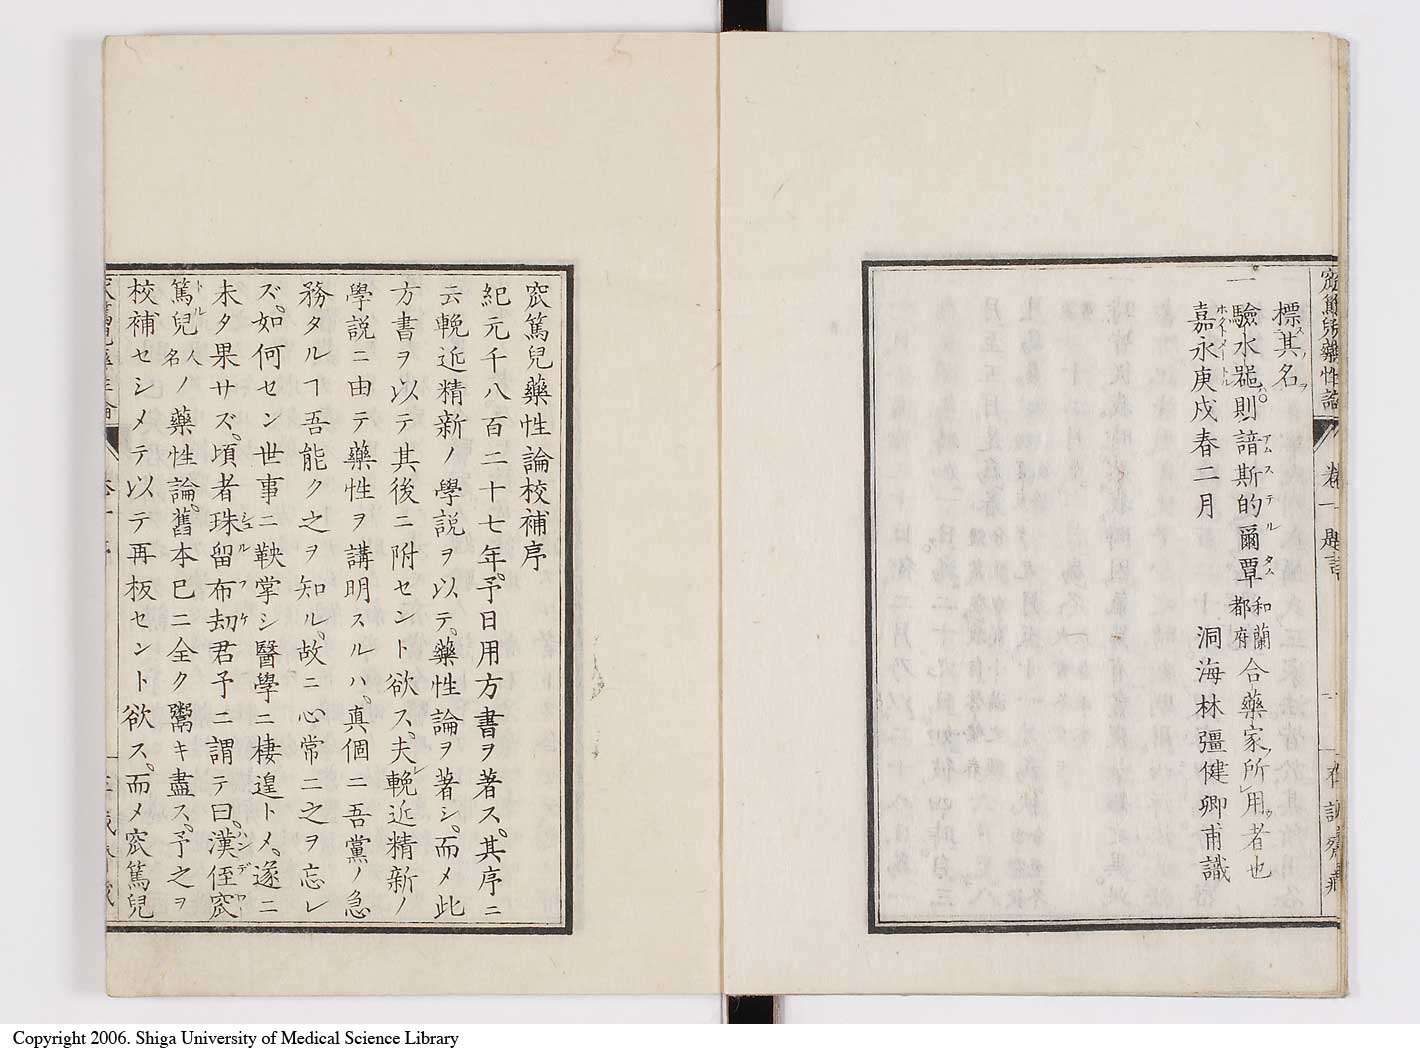 窊篤兒藥性論 卷一 題言 一 存誠齋藏
標其名
一驗水噐則諳斯的爾覃和蘭都府合藥家所用者也
嘉永庚戍春二月 洞海林彊健卿甫識
窊篤兒藥性論校補序
紀元千八百二十七年予日用方書ヲ著ス。其序ニ
云輓近精新ノ學説ヲ以テ。藥性論ヲ著シ。而メ此
方書ヲ以テ其後ニ附セント欲ス。夫レ輓近精新ノ
學説ニ由テ藥性ヲ講明スルハ。真個ニ吾黨ノ急
務タルヿ吾能ク之ヲ知ル。故ニ心常ニ之ヲ忘レ
ズ。如何セン世事ニ鞅掌シ醫學ニ棲遑トメ。遂ニ
未タ果サズ。頃者珠留布刧君予ニ謂テ曰。漢侄窊
篤兒人名ノ藥性論。舊本已ニ全ク鬻キ盡ス。予之ヲ
校補セシメテ以テ再板セント欲ス。而メ窊篤兒
Copyright 2006. Shiga University of Medical Science Library